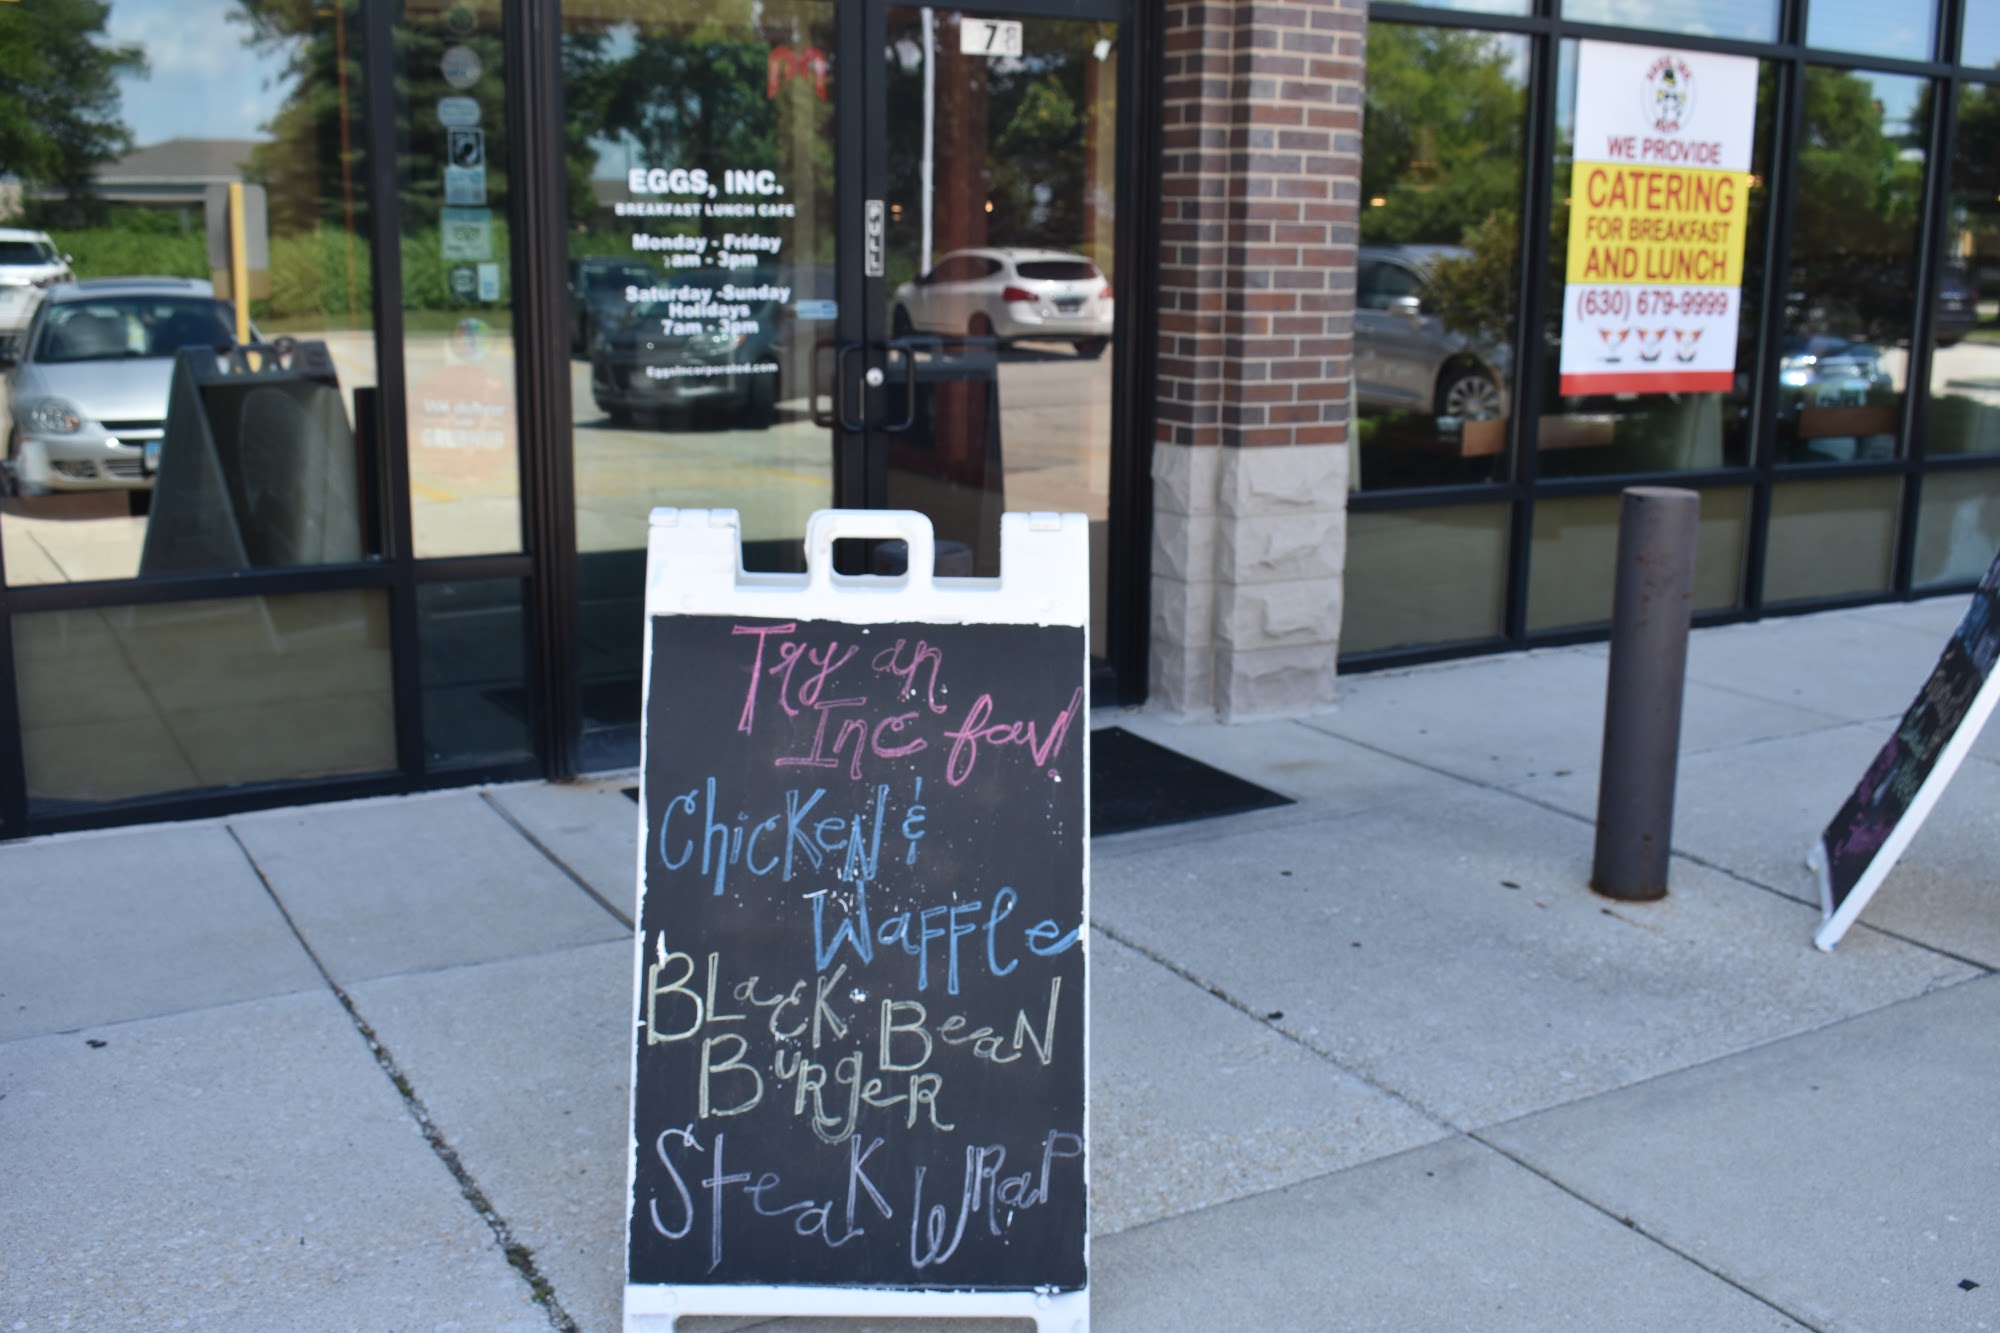 EGGS, INC.
BREAKFAST LUNCH CAFE
Monday - Friday
am - 3pm
Saturday -Sunday
Holidays
7am - 3pm
EggsIncorporated.com
WE PROVIDE
CATERING
FOR BREAKFAST
AND LUNCH
(630) 679-9999
We deliver
GRUBHUB
Try an
Inc fav!
Chicken &
Waffle
Black Bean
Burger
Steak Wrap